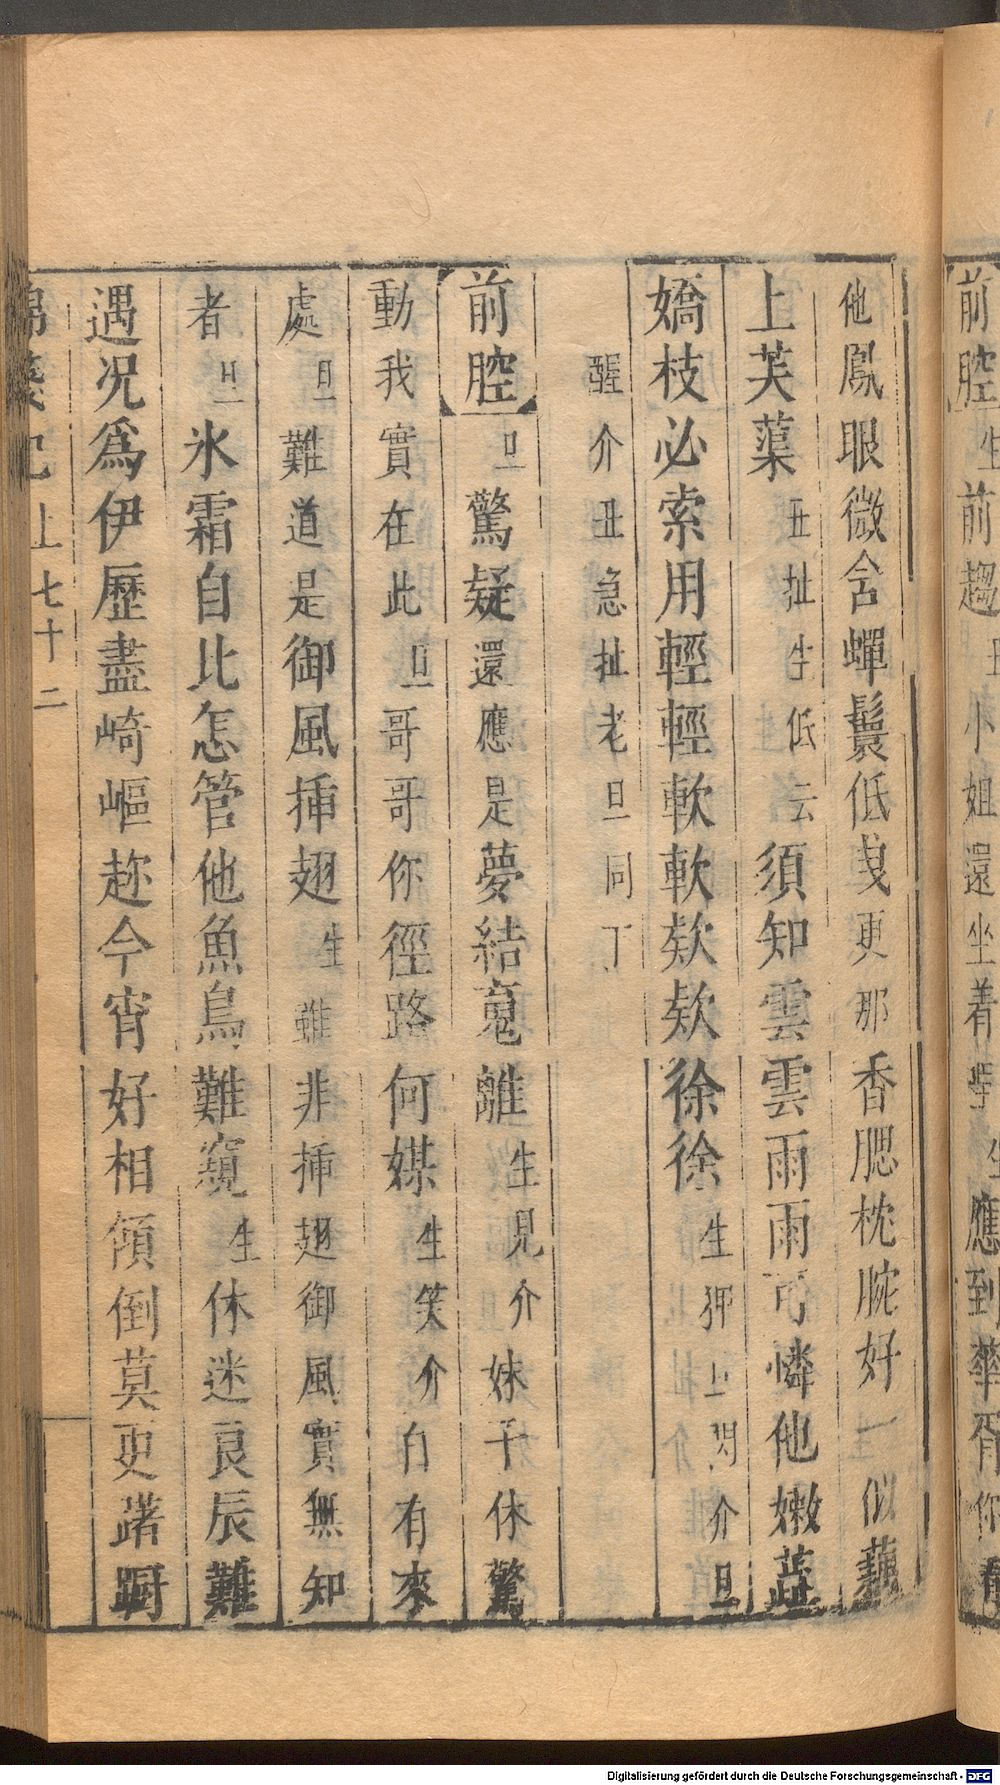 前腔生前趨丑小姐還坐着坐生應到華胥你看
他鳳眼微含蟬鬟低曳更那香腮枕腕好一似藕
上芙蕖丑扯生低云須知雲雲雨雨可憐他嫩蕋
嬌枝必索用輕輕軟軟欵欵徐徐生狎上閃介旦
醒介丑急扯老旦同丁
前腔旦驚疑還應是夢結䰟離生見介妹子休驚
動我實在此旦哥哥你徑路何媒生笑介自有來
處旦難道是御風揷翅生雖非揷翅御風實無知
者旦氷霜自比怎管他魚鳥難窺生休迷良辰難
遇况爲伊歷盡崎嶇趂今宵好相傾倒莫更躇蹰
錦箋記上七十二
Digitalisierung gefördert durch die Deutsche Forschungsgemeinschaft - DFG